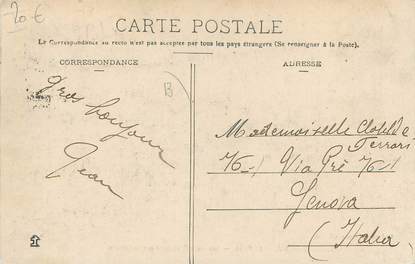 20 €
CARTE POSTALE
La Correspondance au recto n'est pas acceptée par tous les pays étrangers (Se renseigner à la Poste).
CORRESPONDANCE
ADRESSE
13
Gros bonjour
Jean
Mademoiselle Clotilde
Ferrari
76-1 Via Prè 76-1
Genova
(Italie